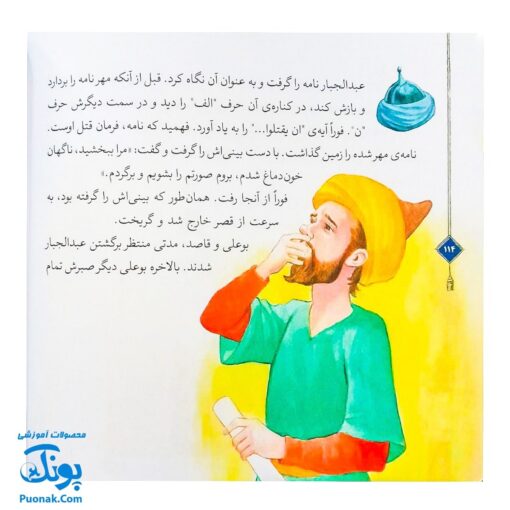 عبدالجبار نامه را گرفت و به عنوان آن نگاه کرد. قبل از آنکه مهر نامه را بردارد
و بازش کند، در کناره‌ی آن حرف "الف" را دید و در سمت دیگرش حرف
"ن". فوراً آیه‌ی "ان یقتلوا..." را به یاد آورد. فهمید که نامه، فرمان قتل اوست.
نامه‌ی مهر شده را زمین گذاشت. با دست بینی‌اش را گرفت و گفت: «مرا ببخشید، ناگهان
خون‌دماغ شدم، بروم صورتم را بشویم و برگردم.»
فوراً از آنجا رفت. همان‌طور که بینی‌اش را گرفته بود، به
سرعت از قصر خارج شد و گریخت.
بوعلی و قاصد، مدتی منتظر برگشتن عبدالجبار
شدند. بالاخره بوعلی دیگر صبرش تمام
۱۱۴
محصولات آموزشی
پونک
Puonak.Com